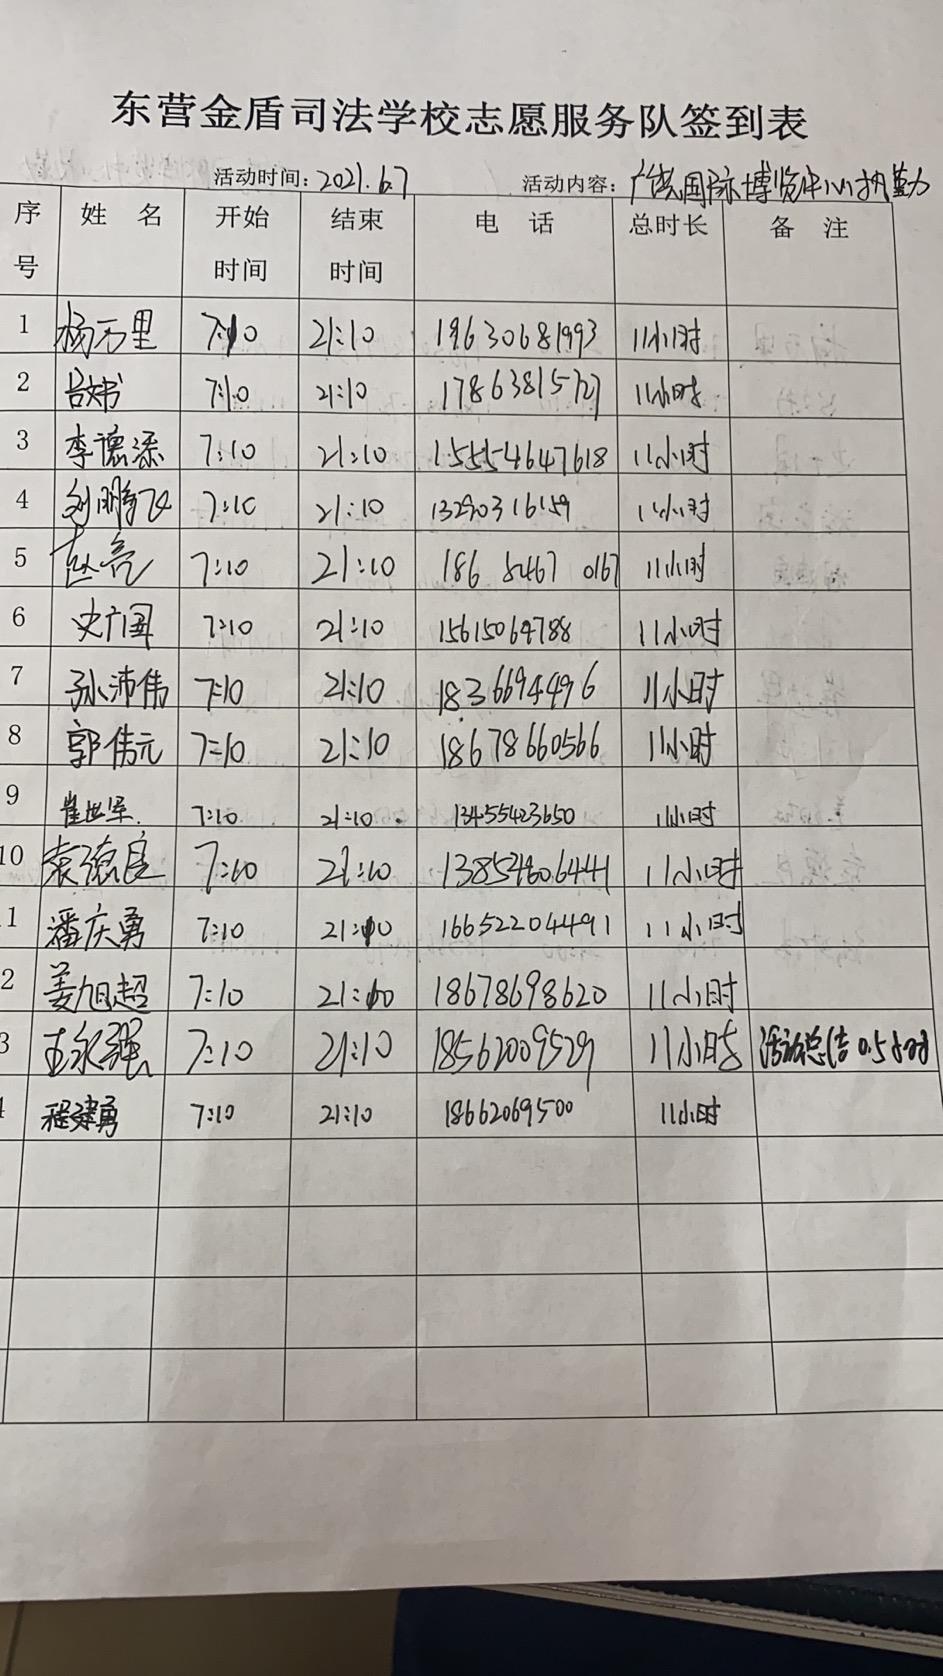 东营金盾司法学校志愿服务队签到表
活动时间：2021.6.7 活动内容：广饶国际博览中心执勤
序号 姓 名 开始时间 结束时间 电 话 总时长 备 注
1 杨万里 7:10 21:10 19630681993 11小时
2 7:10 21:10 17863815727 11小时
3 李德添 7:10 21:10 15554647618 11小时
4 刘鹏飞 7:10 21:10 13290316159 11小时
5 赵亮 7:10 21:10 186 5467 0167 11小时
6 史广国 7:10 21:10 15615064788 11小时
7 孙沛伟 7:10 21:10 18366944496 11小时
8 郭伟元 7:10 21:10 18678660566 11小时
9 崔世军 7:10 21:10 13455423650 11小时
10 袁德良 7:10 21:10 11小时
11 潘庆勇 7:10 21:10 166522044491 11小时
2 姜旭超 7:10 21:10 18678698620 11小时
3 王永强 7:10 21:10 18562009529 11小时 活动总结0.5小时
4 程建勇 7:10 21:10 18662069500 11小时